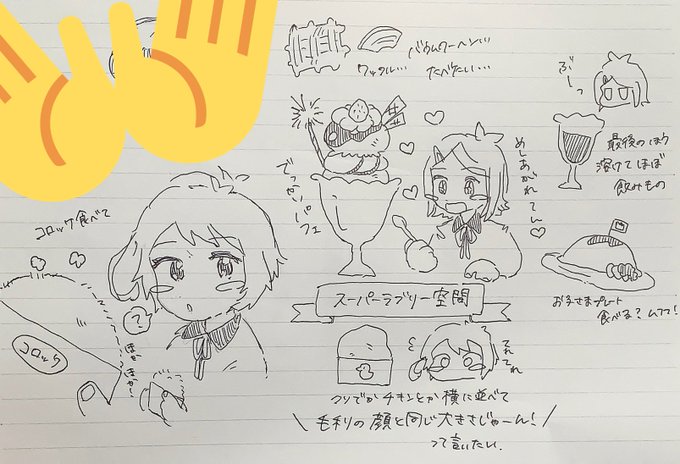 バウムクーヘン…
ワッフル…
たべたい…
ぶーっ
でっかいパフェ
めしあがれてん♡
最後のほう
溶けてほぼ
飲みもの
コロッケ食べて
コロッケ
?
ほか
スーパーラブリー空間
お子さまプレート
食べる?ムフフ!
てれてれ
チキンとか横に並べて
毛利の顔と同じ大きさじゃーん!
って言いたい